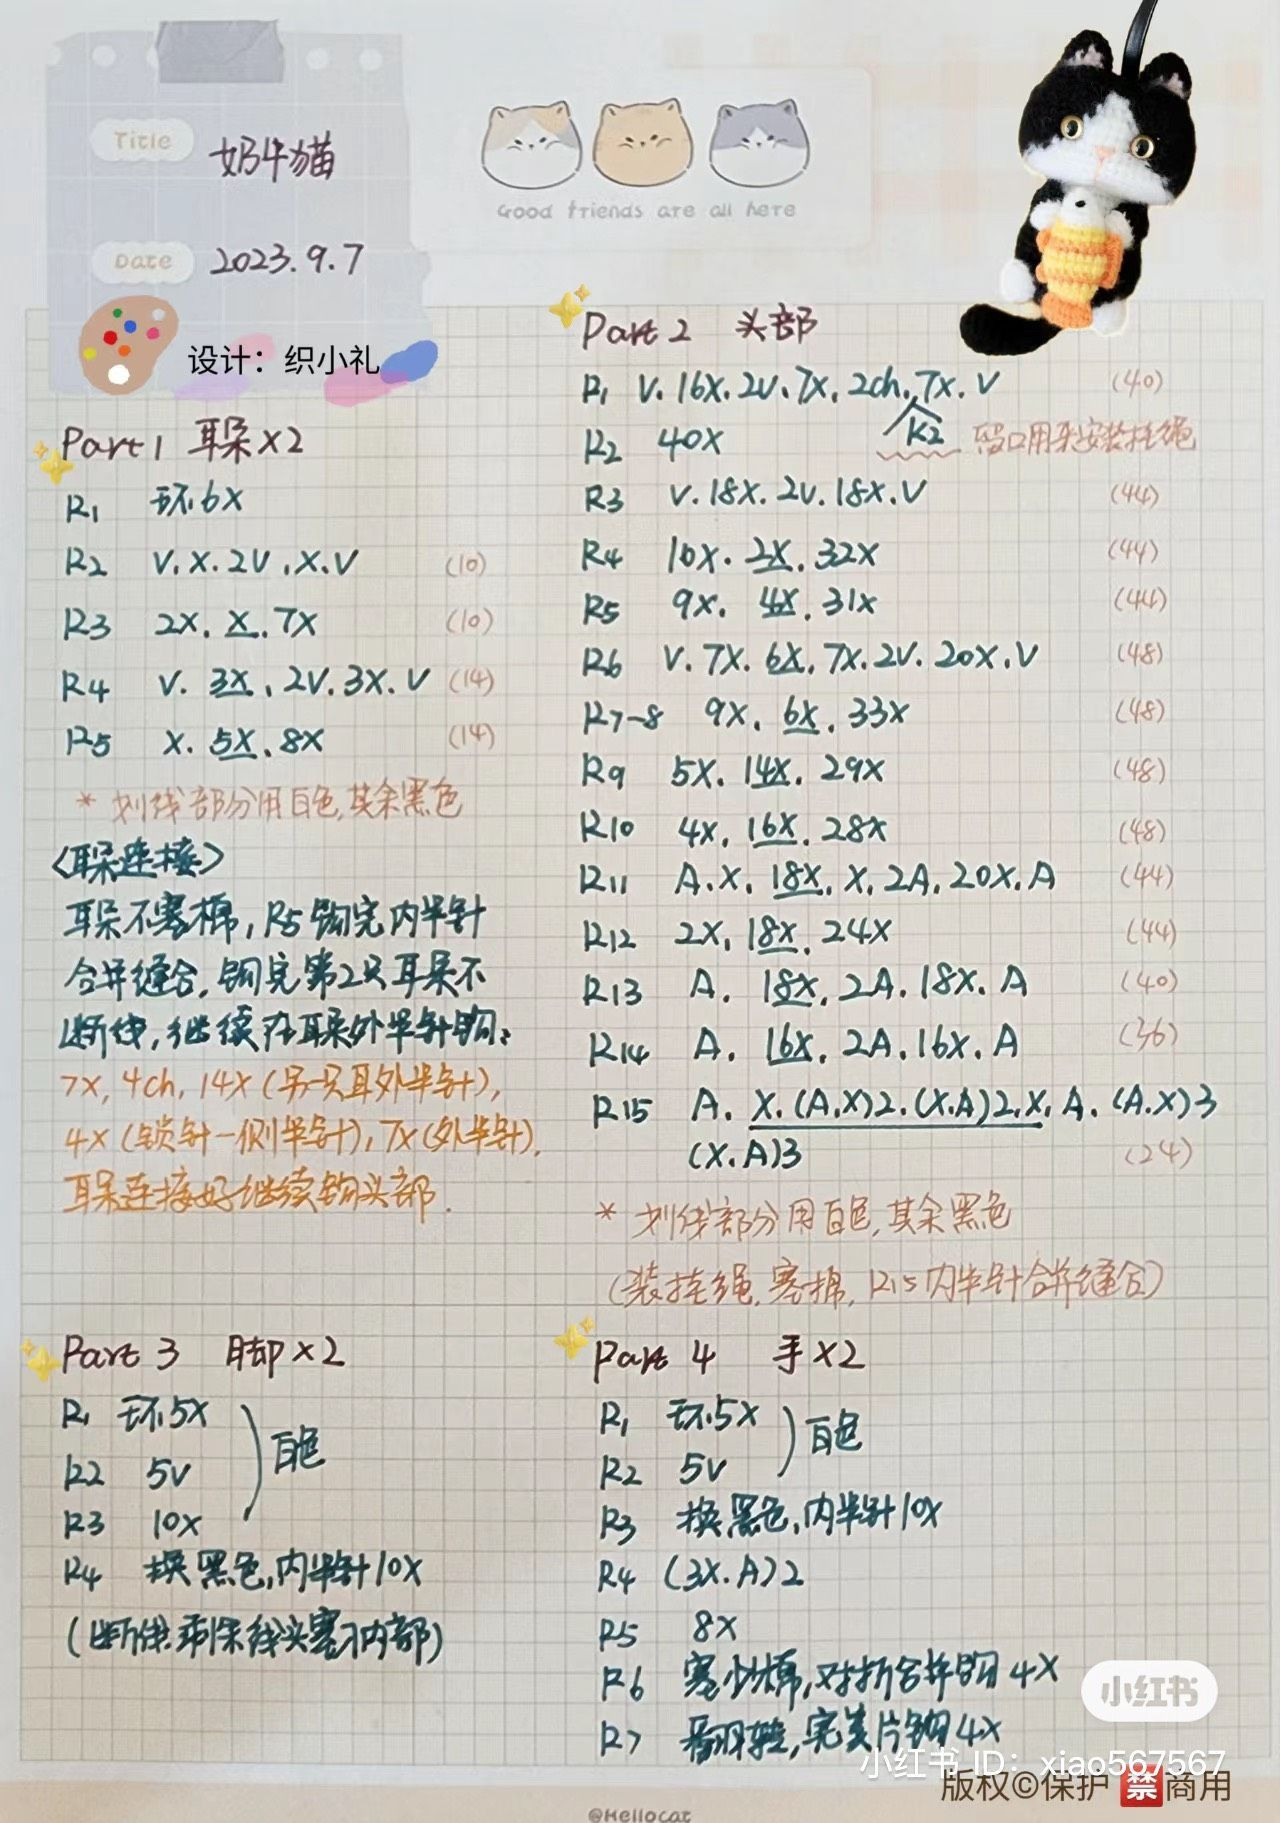 Title 奶牛猫
Date 2023.9.7
设计：织小礼
Good friends are all here
Part 1 耳朵×2
R1 环.6X
R2 V.X.2V.X.V (10)
R3 2X.X.7X (10)
R4 V.3X.2V.3X.V (14)
R5 X.5X.8X (14)
* 划线部分用白色,其余黑色
<耳朵连接>
耳朵不塞棉,R5钩完内半针
合并缝合,钩完第2只耳朵不
断线,继续在耳朵外半针钩:
7X,4ch,14X(另一只耳外半针),
4X(锁针一侧半针),7X(外半针),
耳朵连接好继续钩头部.
Part 2 头部
R1 V.16X.2V.7X.2ch.7X.V (40)
K2 留口用来安装挂绳
R2 40X
R3 V.18X.2V.18X.V (44)
R4 10X.2X.32X (44)
R5 9X.4X.31X (44)
R6 V.7X.6X.7X.2V.20X.V (48)
R7-8 9X.6X.33X (48)
R9 5X.14X.29X (48)
R10 4X.16X.28X (48)
R11 A.X.18X.X.2A.20X.A (44)
R12 2X.18X.24X (44)
R13 A.18X.2A.18X.A (40)
R14 A.16X.2A.16X.A (36)
R15 A.X.(A.X)2.(X.A)2.X.A.(A.X)3
(X.A)3 (24)
* 划线部分用白色,其余黑色
(装挂绳,塞棉,R15内半针合并缝合)
Part 3 脚×2
R1 环.5X
R2 5V 白色
R3 10X
R4 换黑色,内半针10X
(断线.剩余线头塞入内部)
Part 4 手×2
R1 环.5X 白色
R2 5V
R3 换黑色,内半针10X
R4 (3X.A)2
R5 8X
R6 塞少棉,对折合并钩4X
R7 翻转,完美片钩4X
小红书
小红书 ID：xiao567567
版权©保护 禁商用
@Hellocat